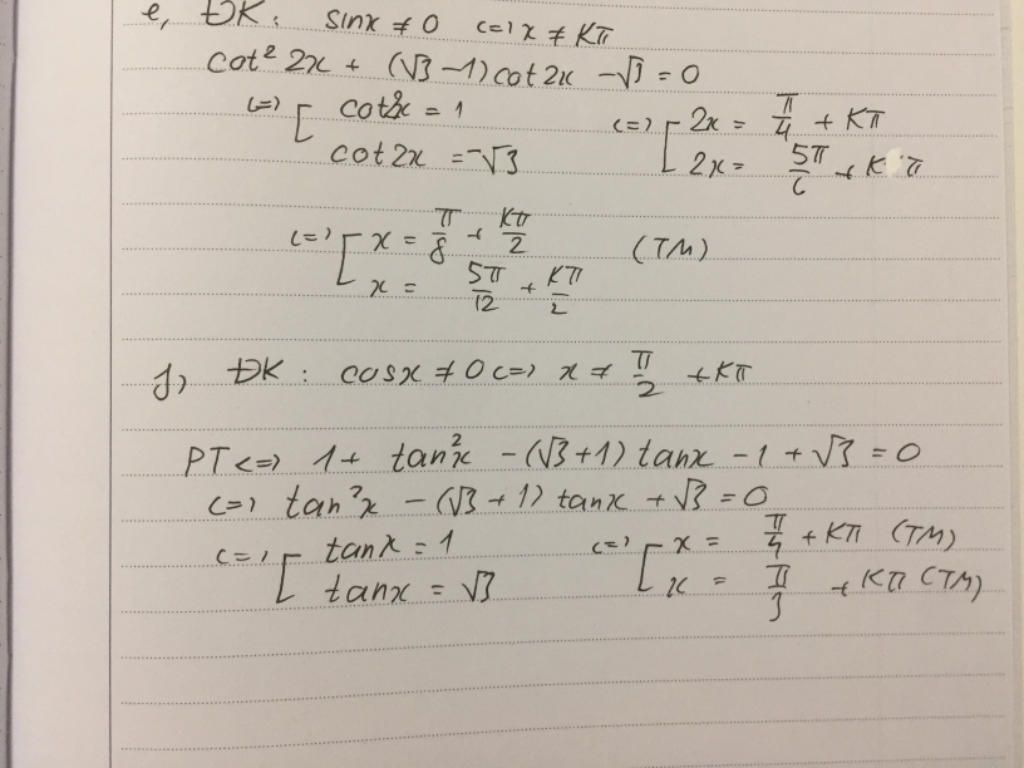 e, ĐK: sinx ≠ 0 <=> x ≠ Kπ
cot² 2x + (√3 - 1) cot 2x - √3 = 0
<=> [ cot2x = 1 <=> [ 2x = π/4 + Kπ
cot2x = -√3 2x = 5π/6 + Kπ
<=> [ x = π/8 + Kπ/2 (TM)
x = 5π/12 + Kπ/2
f, ĐK: cosx ≠ 0 <=> x ≠ π/2 + Kπ
PT <=> 1 + tan²x - (√3 + 1) tanx - 1 + √3 = 0
<=> tan²x - (√3 + 1) tanx + √3 = 0
<=> [ tanx = 1 <=> [ x = π/4 + Kπ (TM)
tanx = √3 x = π/3 + Kπ (TM)